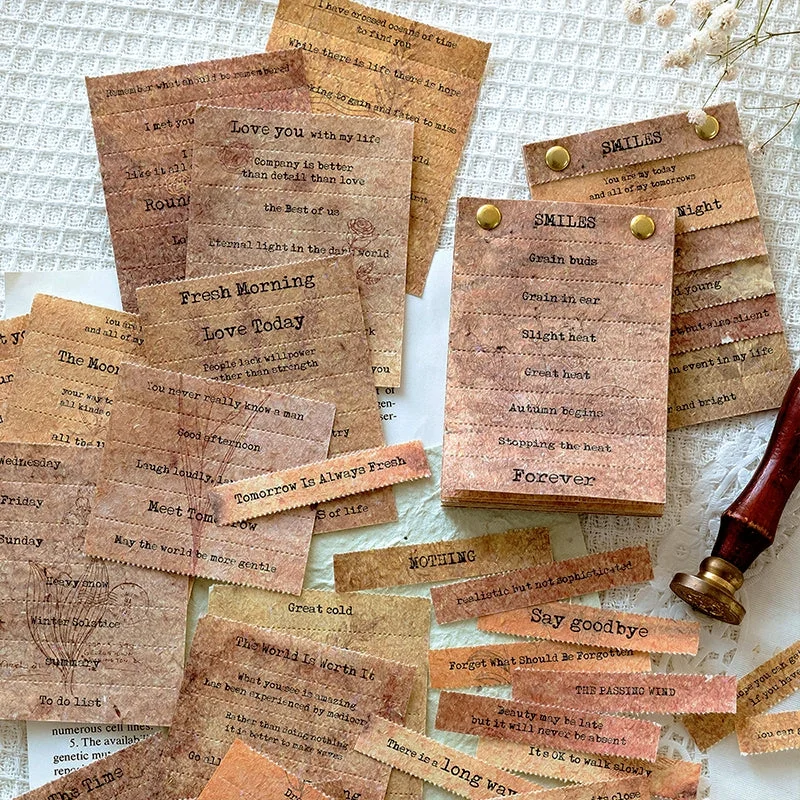 I have crossed oceans of time
to find you
While there is life there is hope
king to gain and fated to miss
Remember what should be remembered
I met you
Love you with my life
Company is better
than detail than love
the Best of us
Eternal light in the dark world
you
SMILES
You are my today
and all of my tomorrows
Night
young
event in my life
and bright
SMILES
Grain buds
Grain in ear
Slight heat
Great heat
Autumn begins
Stopping the heat
Forever
Fresh Morning
Love Today
People lack willpower
rather than strength
of life
You are
and all of my
The Moon
your way to
all kinds o
all the
You never really know a man
Good afternoon
Laugh loudly,
Meet Tomorrow
May the world be more gentle
Tomorrow Is Always Fresh
Wednesday
Friday
Sunday
Heavy snow
Winter Solstice
summary
To do list
Great cold
The World Is Worth It
What you see is amazing
has been experienced by mediocr
Rather than doing nothing
it is better to make waves
Go all
NOTHING
Realistic but not sophisticated
Say goodbye
Forget What Should Be Forgotten
THE PASSING WIND
Beauty may be late
but it will never be absent
It's OK to walk slowly
There is a long way
if you have
You can
numerous cell lines.
5. The availabi
genetic mut
repo
The Time